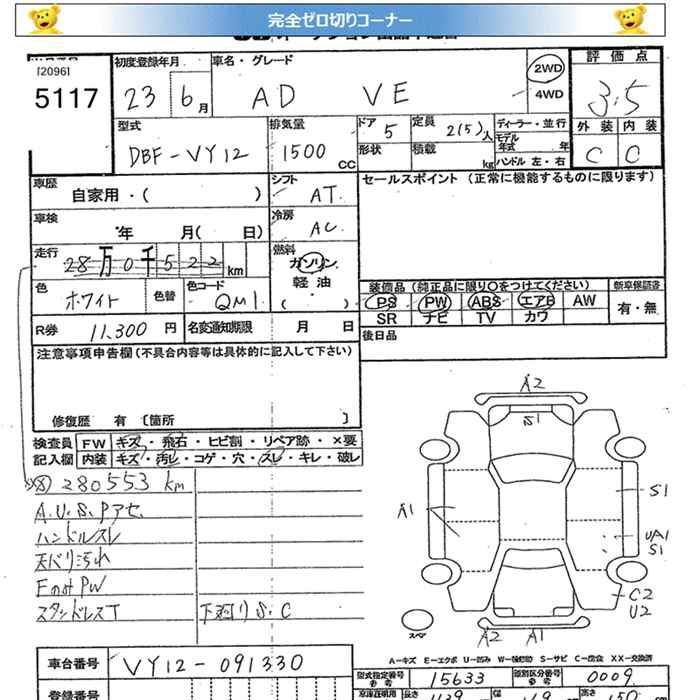 完全ゼロ切りコーナー
[2096]
5117
初度登録年月
23 6月
車名・グレード
AD VE
2WD
4WD
評価点
3.5
外装 内装
C C
型式
DBF-VY12
排気量
1500 CC
ドア 5
形状
定員 2(5)人
積載 kg
ディーラー・並行
モデル年式 年
ハンドル 左・右
車歴
自家用・( )
シフト
AT
セールスポイント (正常に機能するものに限ります)
車検
年 月( 日)
冷房
AC
走行
28万0千522km
燃料
ガソリン
軽油
( )
色
ホワイト
色替
色コード
QM1
装備品 (純正品に限り○をつけてください)
PS PW ABS エアB AW
SR ナビ TV カワ
新車保証書
有・無
R券 11,300円
名変通知期限 月 日
後日品
注意事項申告欄 (不具合内容等は具体的に記入して下さい)
修復歴 有 〔箇所 〕
検査員
記入欄
FW キズ・飛石・ヒビ割・リペア跡・×要
内装 キズ・汚レ・コゲ・穴・スレ・キレ・破レ
280553 km
A.U.S.Pアセ
ハンドルスレ
天バリ汚れ
FのみPW
スタッドレスT
下廻りS.C
A2
S1
A1
S1
UA1
S1
C2
U2
A2 A1
スペア
A-キズ E-エクボ U-凹み W-補修跡 S-サビ C-腐食 XX-交換済
車台番号
VY12-091330
型式指定番号
参考
15633
類別区分番号
参考
0009
登録番号
長さ
幅
高さ